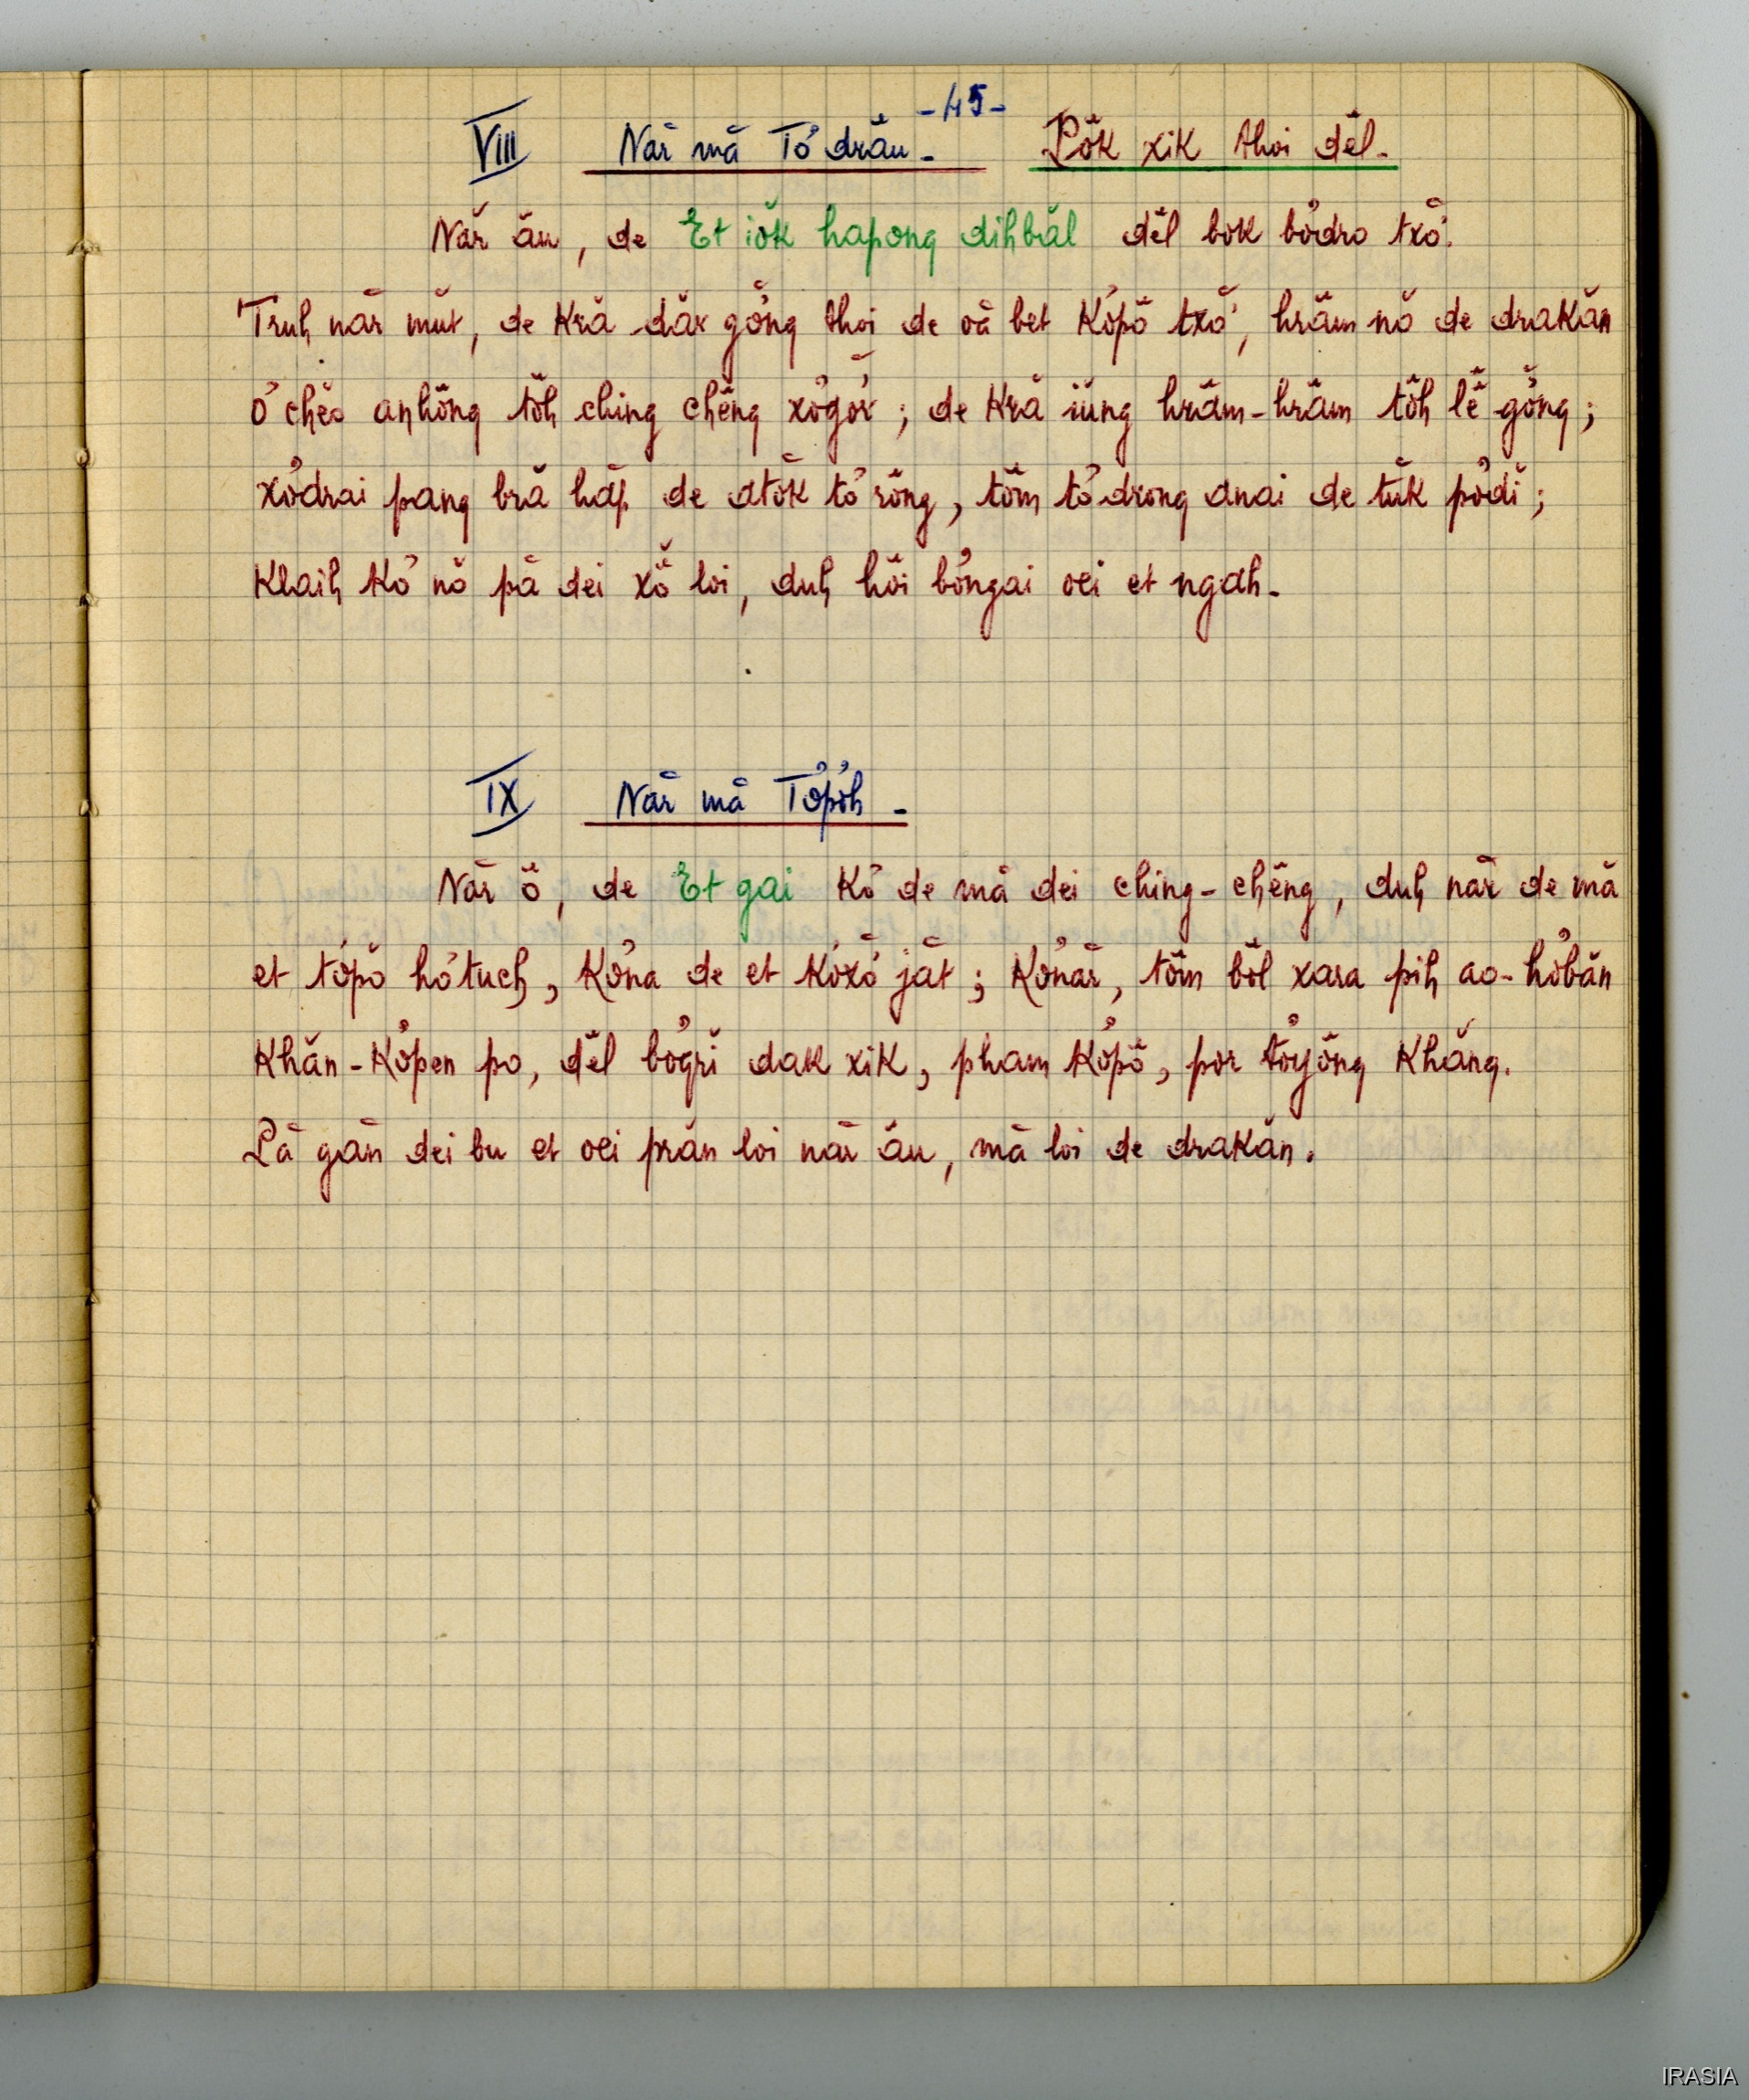 -45-
VIII Năr mă Tơdrău - Pŏk xik thoi dĕl -
Năr ău, de Et iŏk hapong dihbăl dĕl bok bơdro txơ̆.
Truh năr mŭt, de kră dăr gơ̆ng thoi de oă bet kơpô txơ̆, hrăm nŏ de drakăn
ơ̆ chĕo anhŏng tŏh ching chêng xơgơ̆r ; de kră iŭng hrăm-hrăm tŏh lĕ gơ̆ng ;
xơdrai pang bră hăp de atŏk tơ rŏng, tôm tơdrong anai de tŭk pơdĭ ;
Klaih kơ nŏ pă dei xơ̆ loi, duh hŏi bơngai oei et ngah -
IX Năr mă Tơpơh -
Năr ô̆, de Et gai kơ de mă dei ching-chêng, duh năr de mă
et tơpŏ hơtuch, kơna de et kơxơ̆ jăt ; kơnăr, tôm bôl xara pih ao-hơbăn
khăn-kơpen po, dĕl bơgrĭ dak xik, pham kơpô, por tơyŏng khăng.
Lă găn dei bu et oei prăn loi năr ău, mă loi de drakăn.
IRASIA